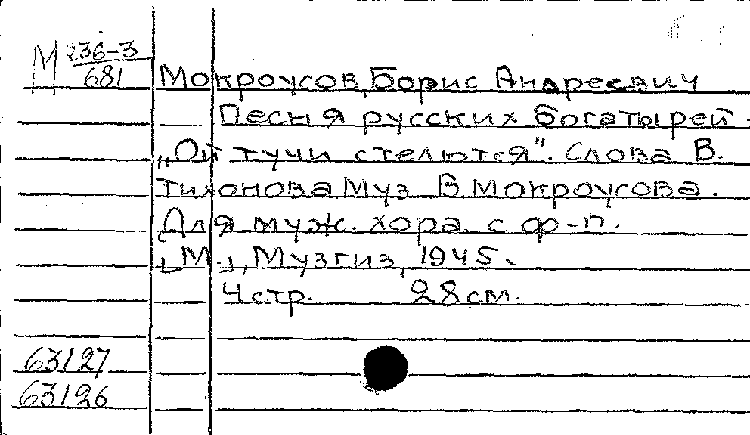 М 236-3
681
Мокроусов, Борис Андреевич
Песня русских богатырей
„Ой тучи стелются". Слова В.
Тихонова Муз В. Мокроусова.
Для муж. хора с ф-п.
[М.], Музгиз, 1945.
4 стр. 28 см.
63127
63126